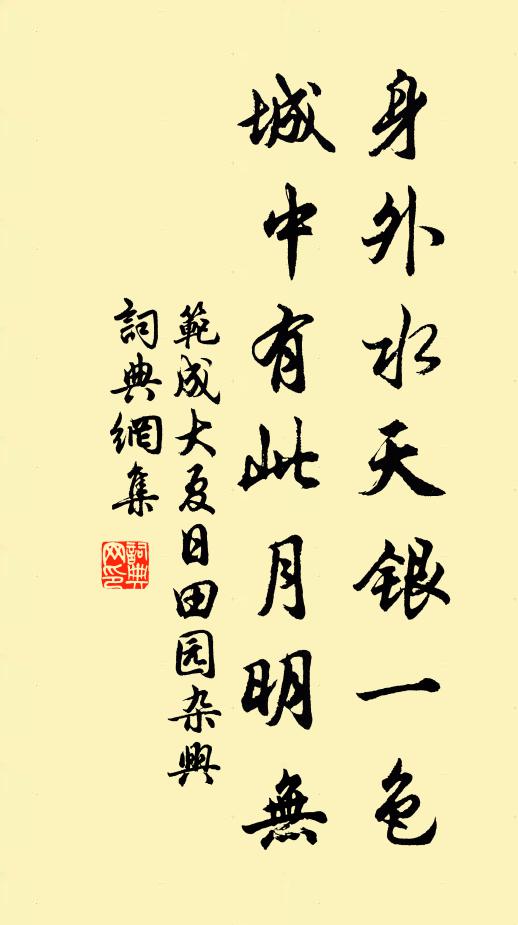 身外水天銀一色
城中有此月明無
範成大夏日田园杂興
詞典網集
詞典网印